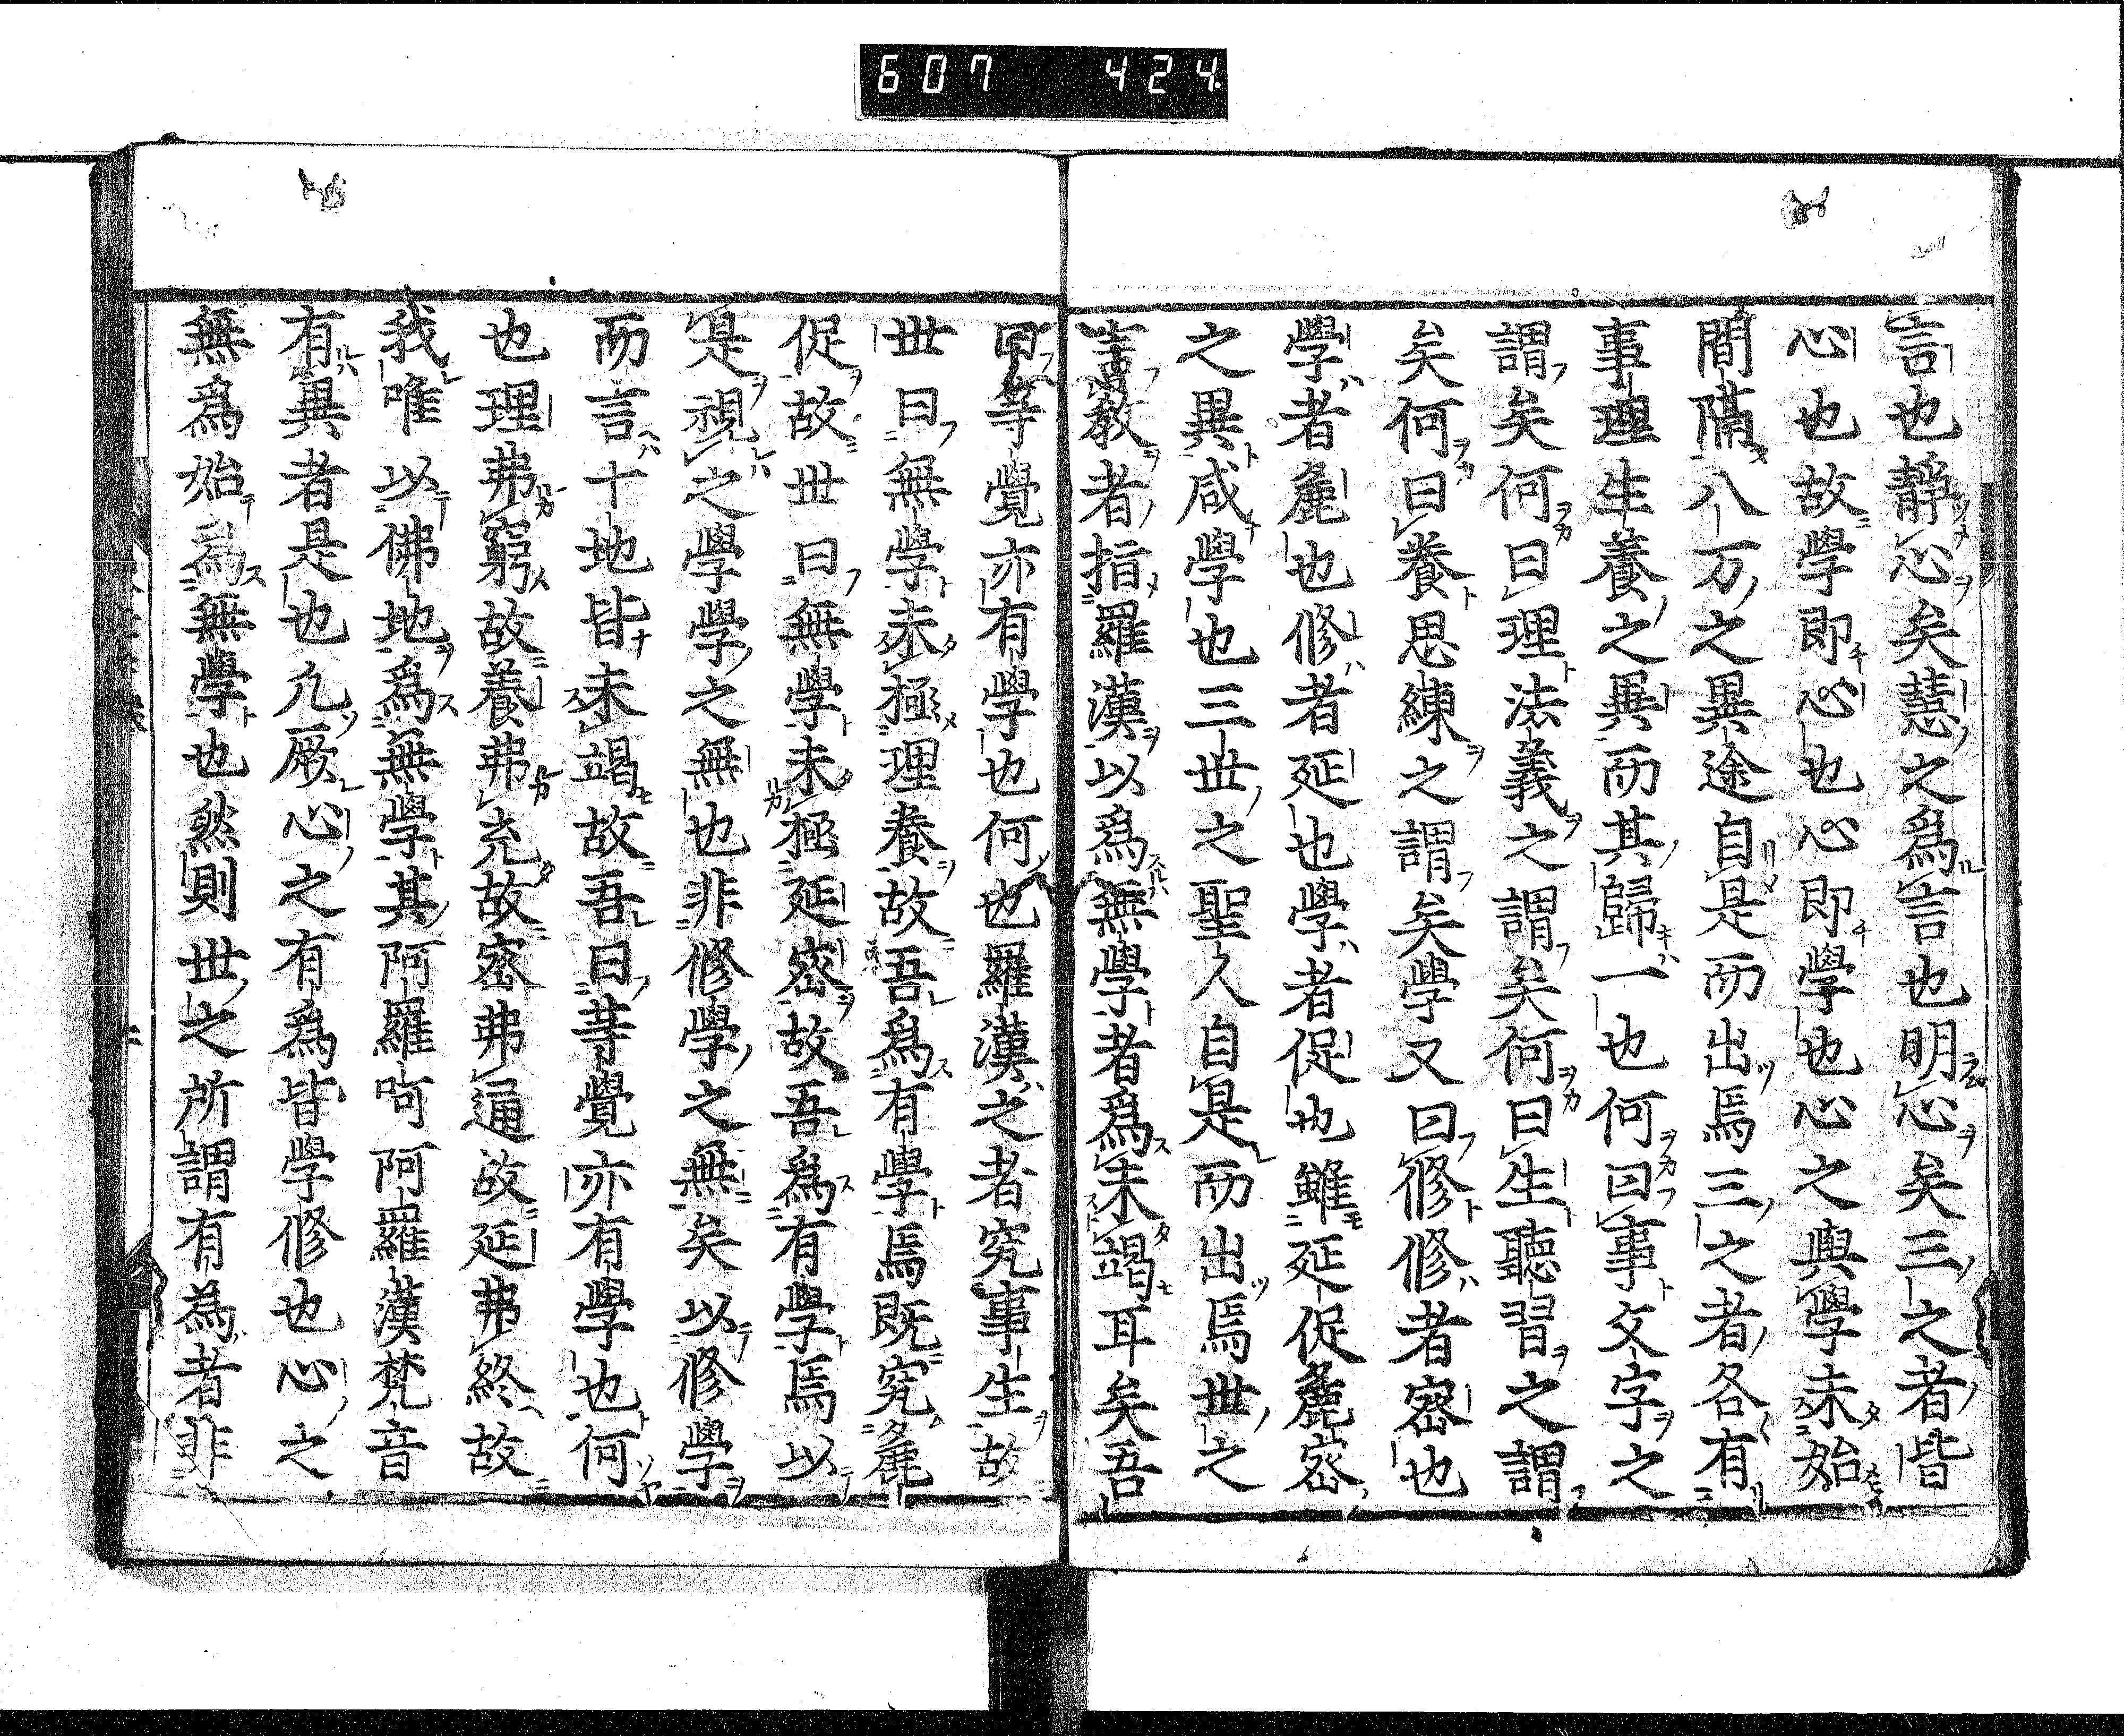 607 424
言也靜心矣慧之爲言也明心矣三之者皆
心也故學即心也心即學也心之與學未始
間隔八万之異途自是而出焉三之者各有
事理生養之異而其歸一也何曰事文字之
謂矣何曰理法義之謂矣何曰生聽習之謂
矣何曰養思練之謂矣學又曰修修者密也
學者麁也修者延也學者促也雖延促麁密
之異咸學也三世之聖人自是而出焉世之
言教者指羅漢以爲無學者爲未竭耳矣吾
曰等覺亦有學也何也羅漢之者究事生故
世曰無學未極理養故吾爲有學焉既究麁
促故世曰無學未極延密故吾爲有學焉以
是視之學學之無也非修學之無矣以修學
而言十地皆未竭故吾曰等覺亦有學也何
也理弗窮故養弗充故密弗逼故延弗終故
我唯以佛地爲無學其阿羅呵阿羅漢梵音
有異者是也凢厥心之有爲皆學修也心之
無爲始爲無學也然則世之所謂有為者非